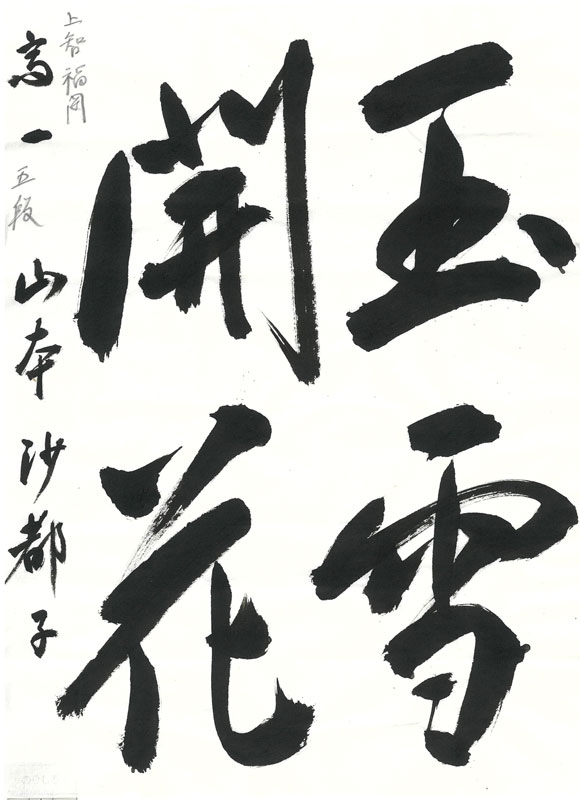 玉雪
開花
上智福岡
高一 五段 山本沙都子